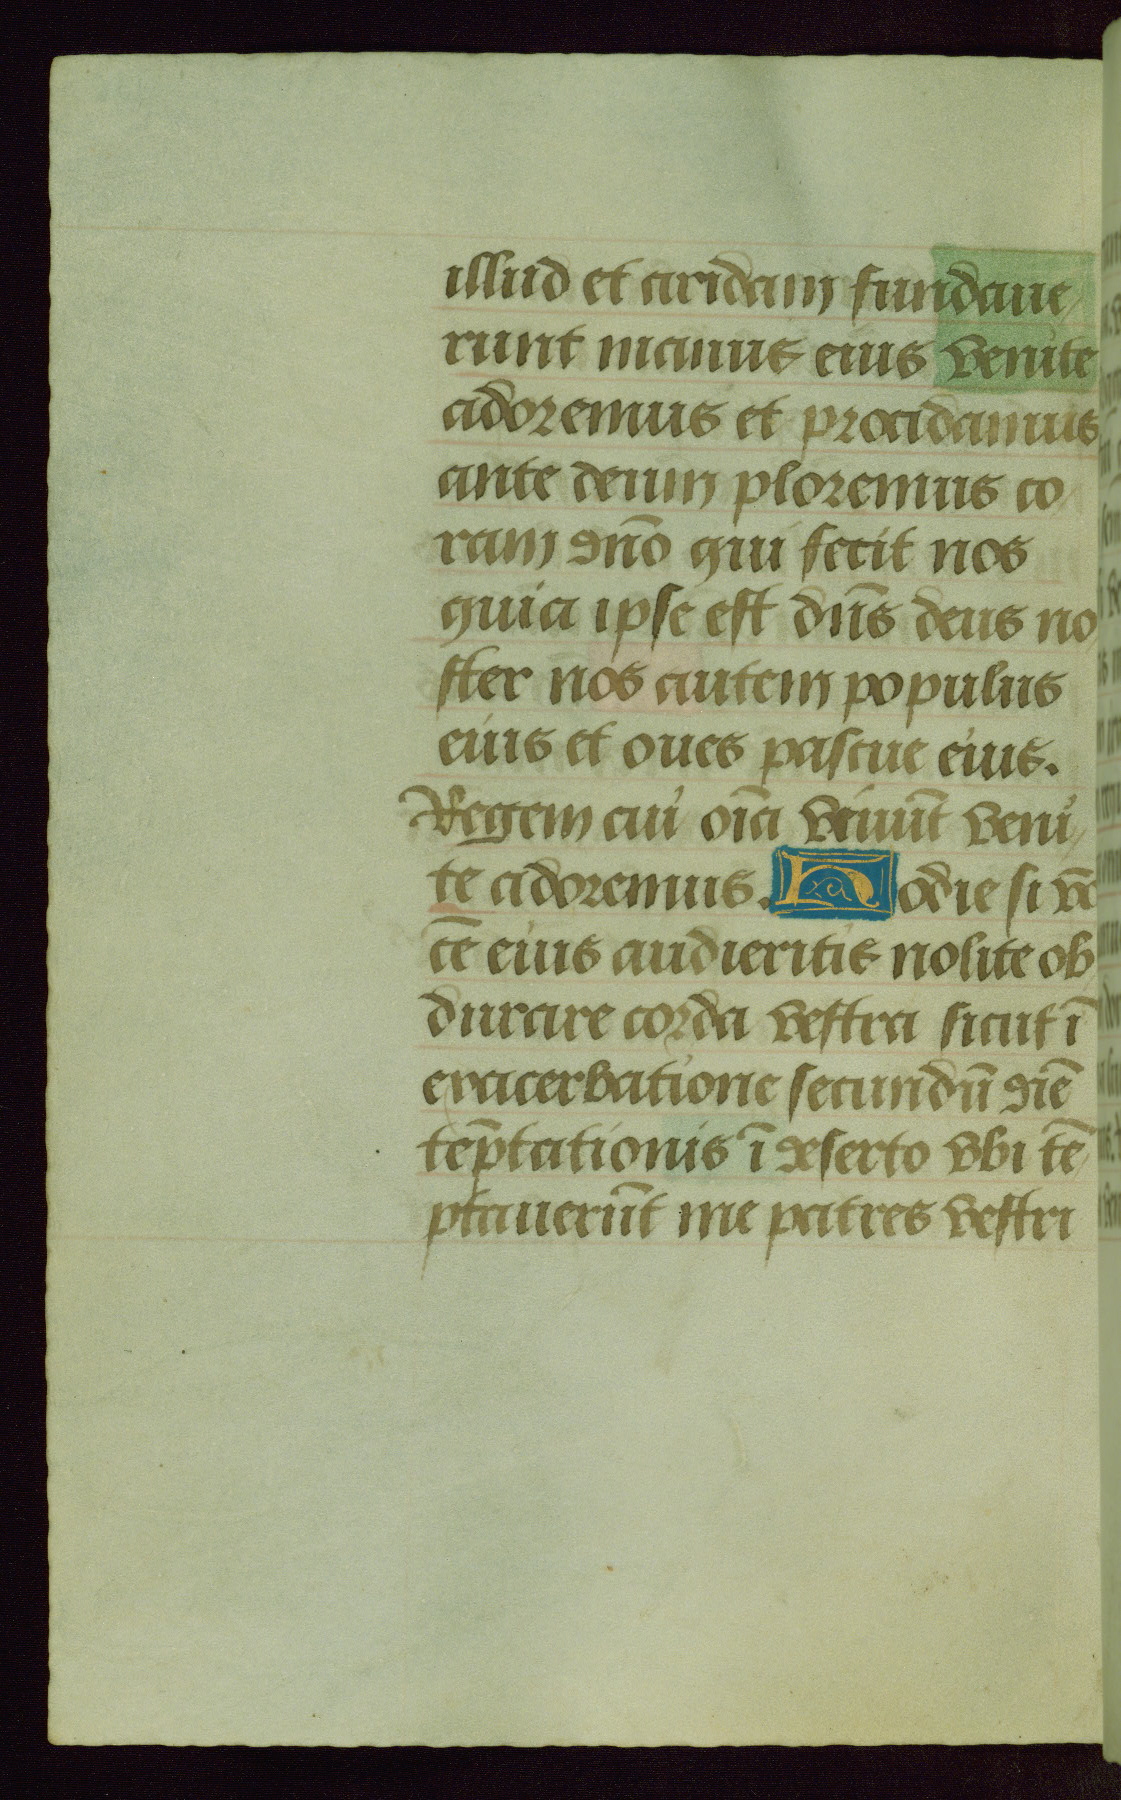 illud et aridam fundaue
runt manus eius venite
adoremus et procidamus
ante deum ploremus co
ram dn̄o qui fecit nos
quia ipse est dn̄s deus no
ster nos autem populus
eius et oues pascue eius.
Regem cui oīa viuūt veni
te adoremus. Hodie si vō
cē eius audieritis nolite ob
durare corda vestra sicut ī
exacerbatione secundū diē
tēptationis ī deserto vbi tē
ptauerūt me patres vestri